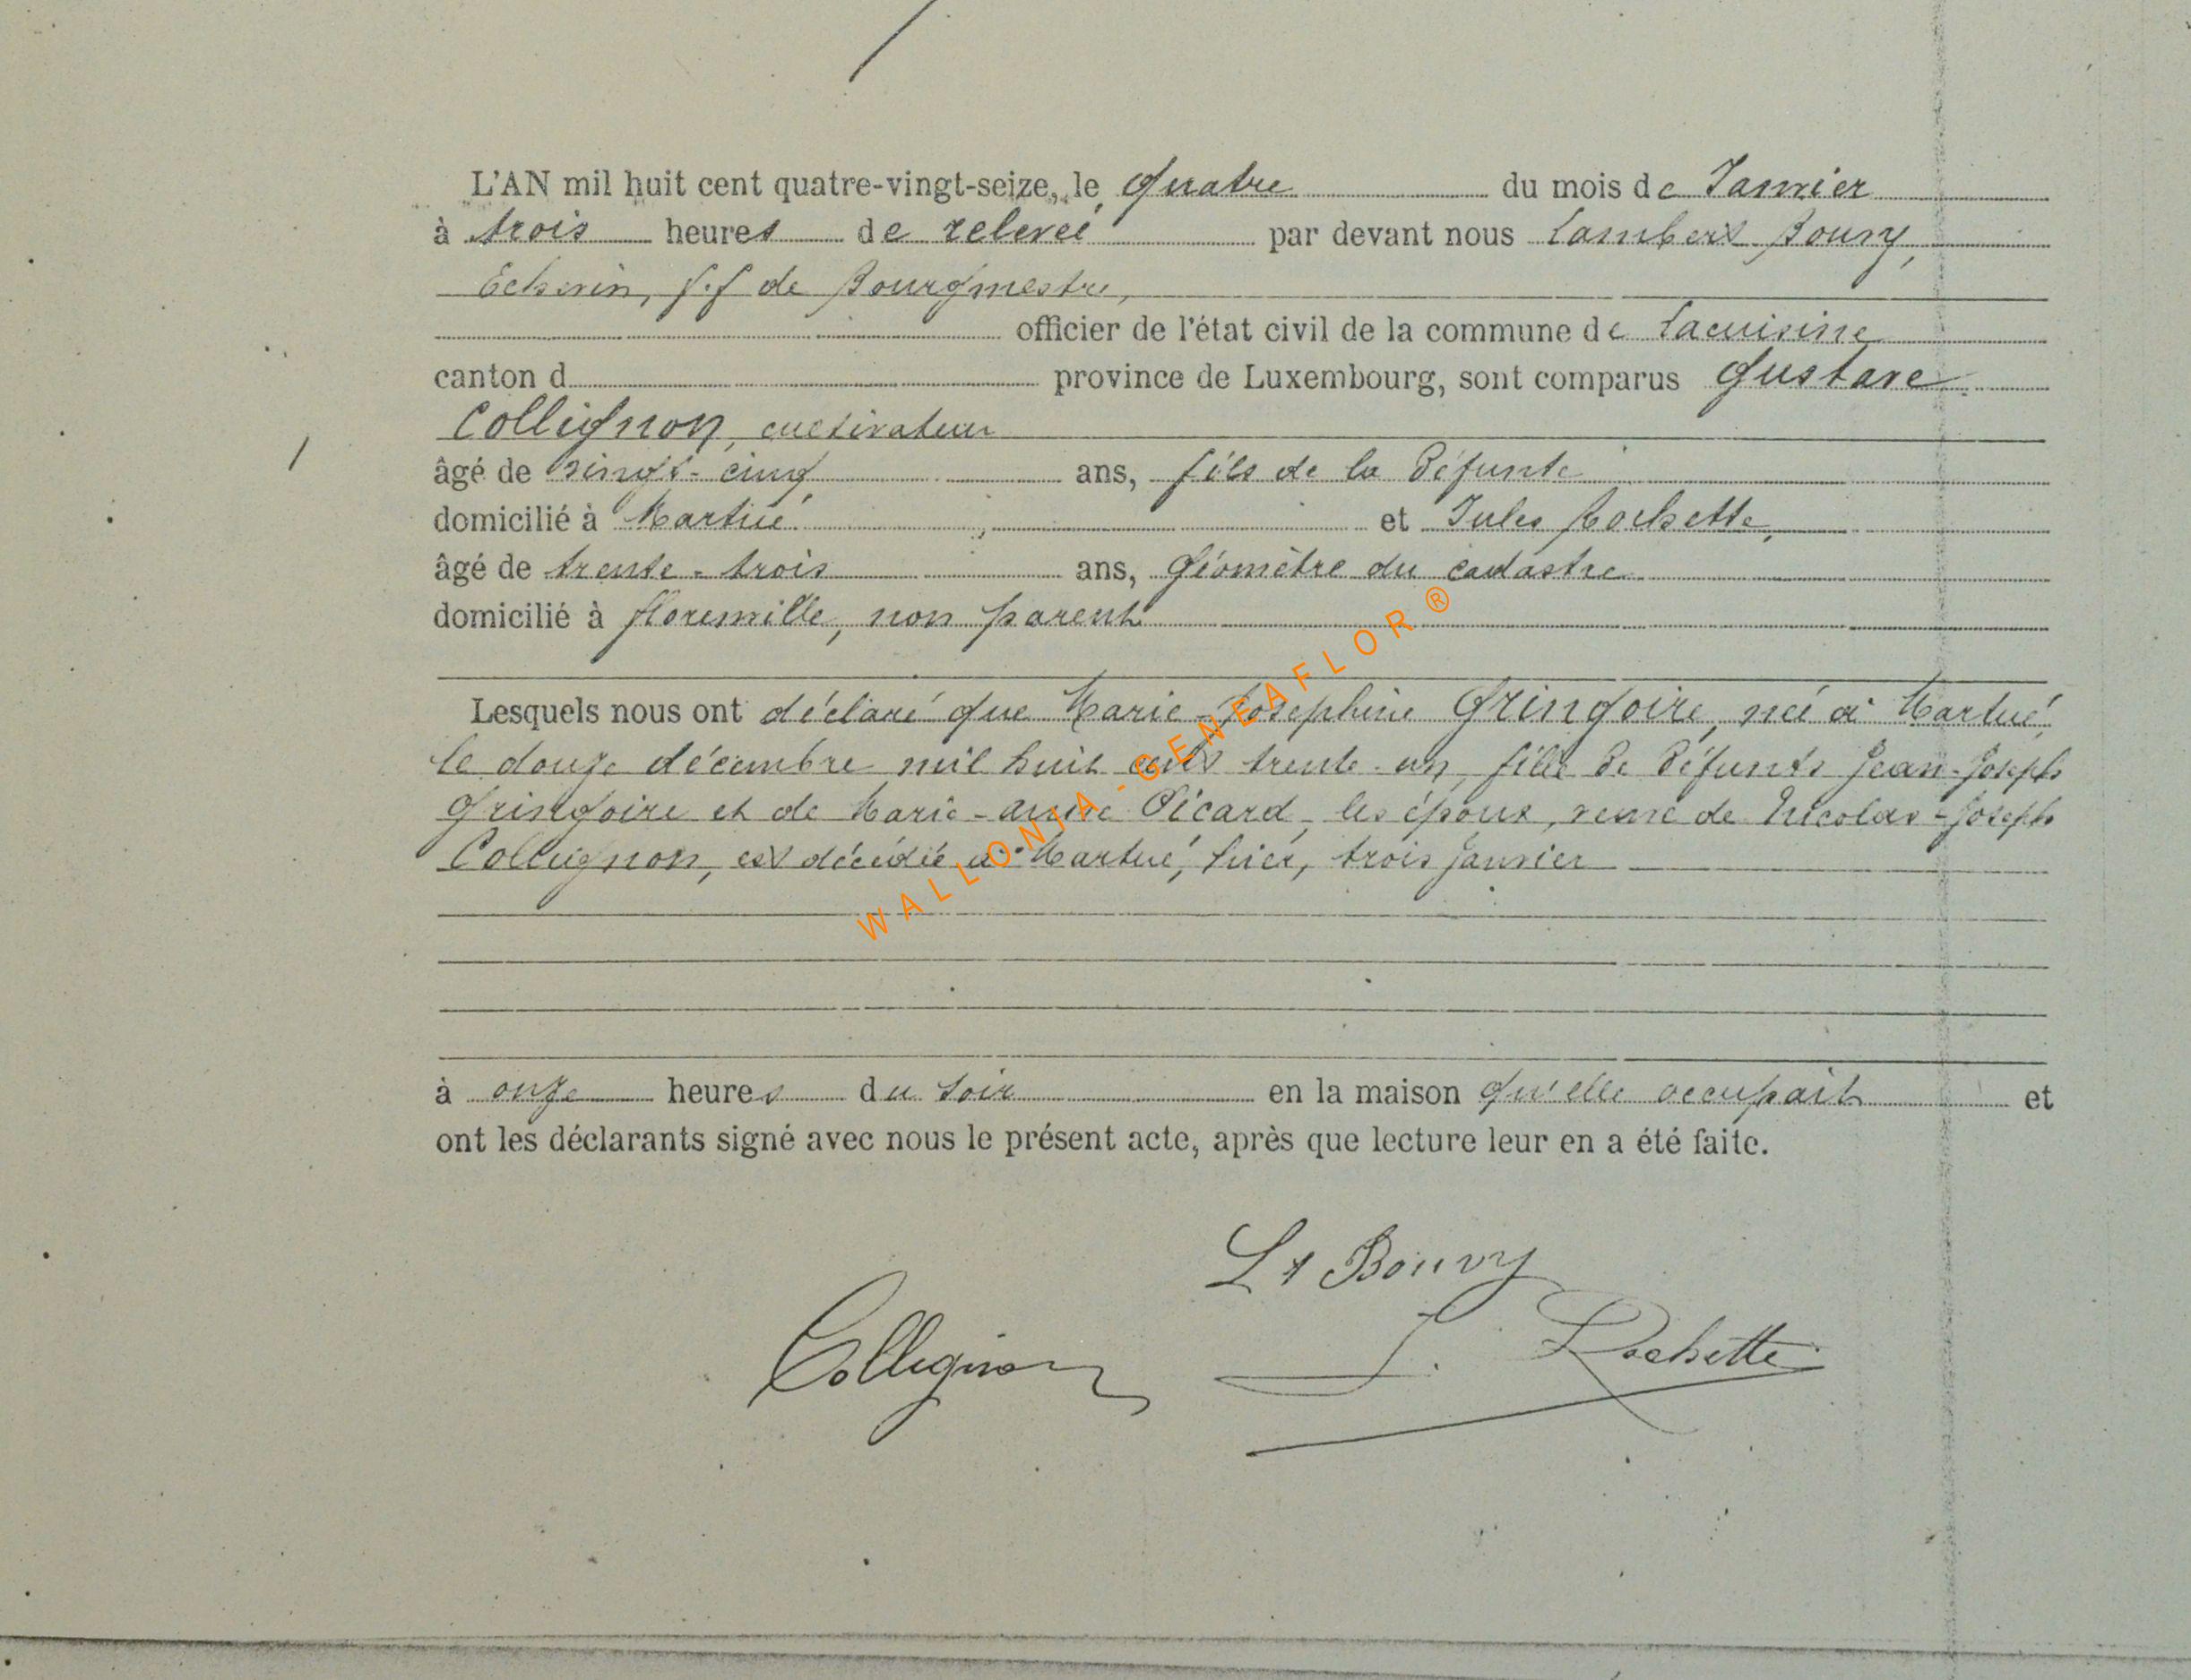 L'AN mil huit cent quatre-vingt-seize, le quatre du mois de Janvier
à trois heures de relevée par devant nous Lambert Bouvy,
Echevin, f.f de Bourgmestre,
officier de l'état civil de la commune de Lacuisine
canton d province de Luxembourg, sont comparus Gustave
Collignon, cultivateur
âgé de vingt-cinq ans, fils de la défunte
domicilié à Martué, et Jules Rochette,
âgé de trente-trois ans, Géomètre du cadastre
domicilié à Florenville, non parent
Lesquels nous ont déclaré que Marie-Joséphine Gringoire, née à Martué,
le douze décembre mil huit cent trente-un, fille de défunts Jean-Joseph
Gringoire et de Marie-Anne Picard, les époux, veuve de Nicolas-Joseph
Collignon, est décédée à Martué, hier, trois janvier
à onze heures du soir en la maison qu'elle occupait et
ont les déclarants signé avec nous le présent acte, après que lecture leur en a été faite.
Lt Bouvy
Collignon J. Rochette
WALLONIA-GENEAFLOR®